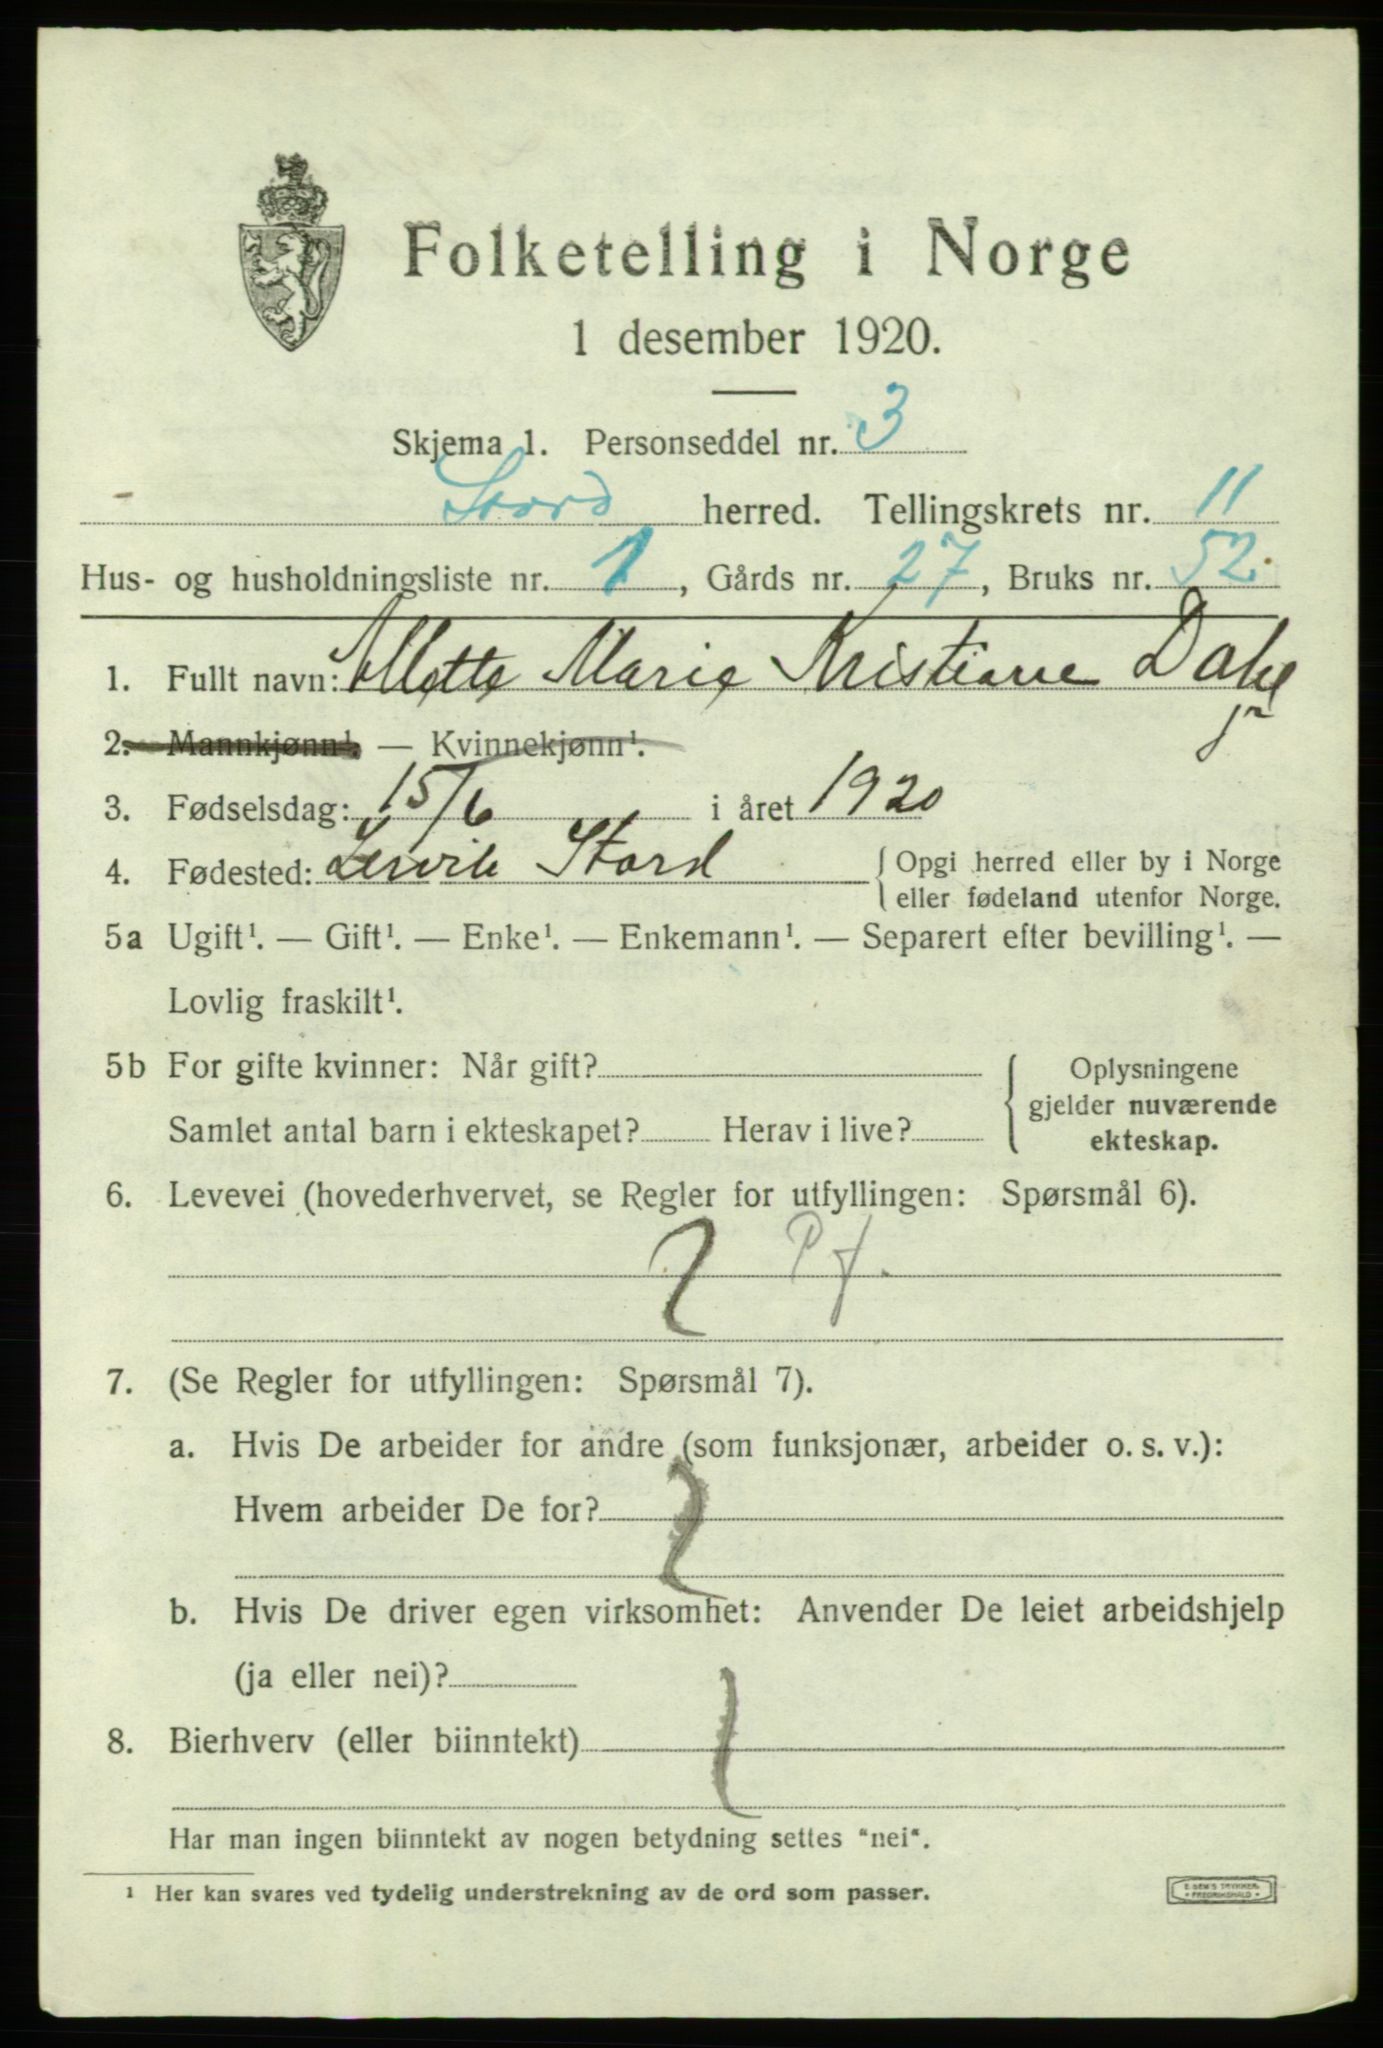 Folketelling i Norge
1 desember 1920.
Skjema 1. Personseddel nr. 3
Stord herred. Tellingskrets nr. 11
Hus- og husholdningsliste nr. 1, Gårds nr. 27, Bruks nr. 52.
1. Fullt navn: Mette Marie Kristiane Dahl
jr
2. Mannkjønn¹. — Kvinnekjønn¹.
3. Fødselsdag: 15/6 i året 1920
4. Fødested: Lervik Stord { Opgi herred eller by i Norge
eller fødeland utenfor Norge.
5a Ugift¹. — Gift¹. — Enke¹. — Enkemann¹. — Separert efter bevilling¹. —
Lovlig fraskilt¹.
5b For gifte kvinner: Når gift? { Oplysningene
gjelder nuværende
Samlet antal barn i ekteskapet? Herav i live?
ekteskap.
6. Levevei (hovederhvervet, se Regler for utfyllingen: Spørsmål 6).
Pf.
7. (Se Regler for utfyllingen: Spørsmål 7).
a. Hvis De arbeider for andre (som funksjonær, arbeider o. s. v.):
Hvem arbeider De for?
b. Hvis De driver egen virksomhet: Anvender De leiet arbeidshjelp
(ja eller nei)?
8. Bierhverv (eller biinntekt)
Har man ingen biinntekt av nogen betydning settes "nei".
¹ Her kan svares ved tydelig understrekning av de ord som passer.
FREDRIKSHALD